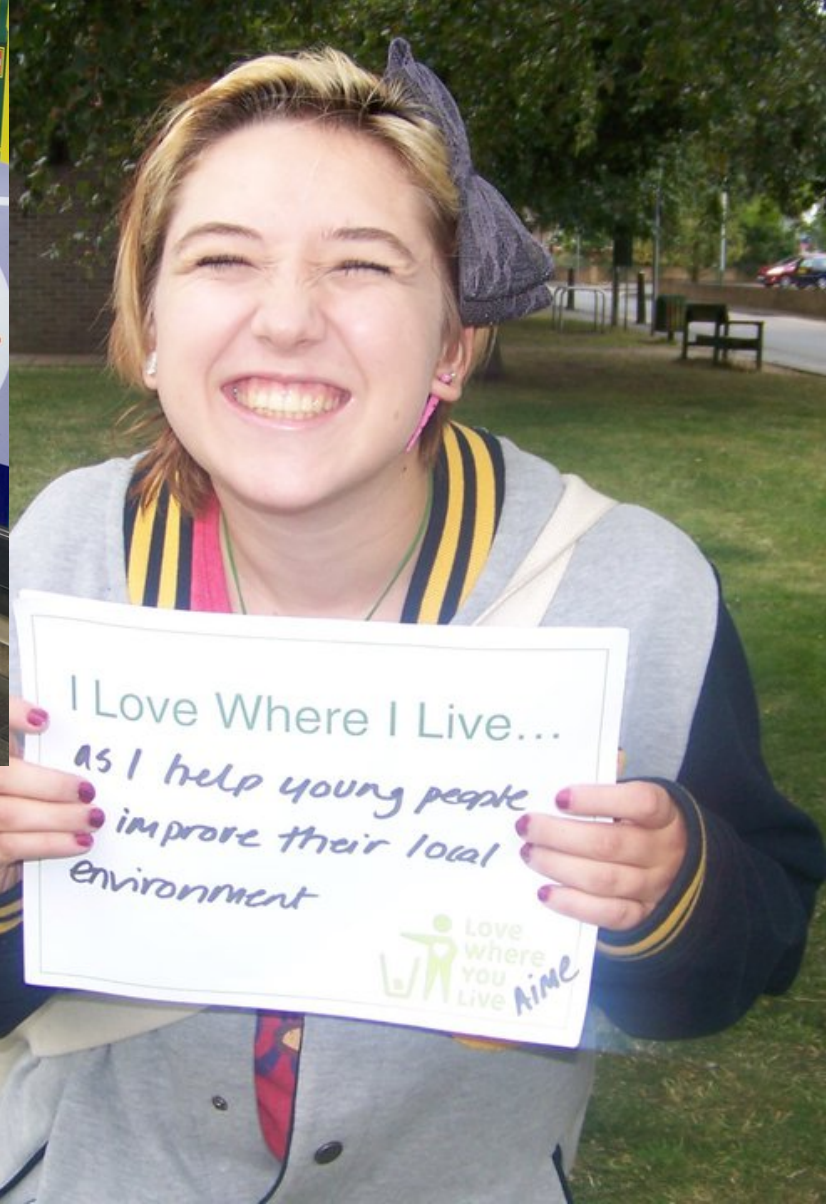 I Love Where I Live...
as I help young people
improve their local
environment
Love
where
you
Live
Aime